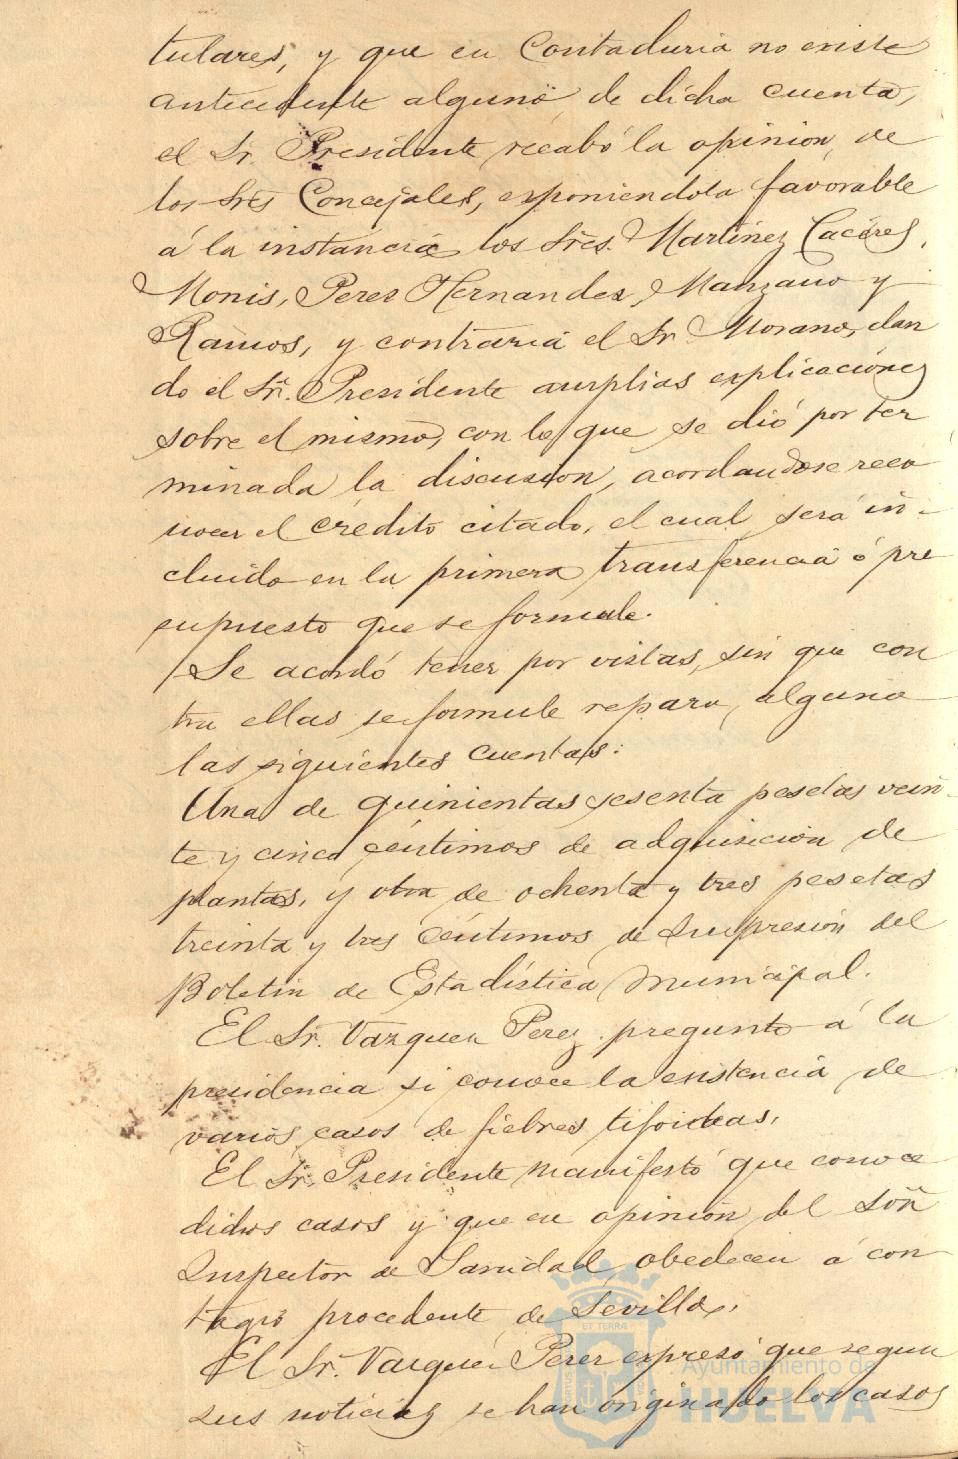 tulares, y que en Contaduria no existe
antecedente alguno de dicha cuenta,
el Sr. Presidente recabó la opinion de
los Sres Concejales, exponiendola favorable
á la instancia los Sres. Martinez Caceres,
Monis, Perez Hernandez, Manzano y
Ramos, y contraria el Sr. Morano, dan
do el Sr. Presidente amplias explicaciones
sobre el mismo, con lo que se dió por ter
minada la discusion, acordandose reco
nocer el crédito citado, el cual será in-
cluido en la primera transferencia ó pre
supuesto que se formule.
Se acordó tener por vistas, sin que con
tra ellas se formule reparo, alguno
las siguientes cuentas:
Una de quinientas sesenta pesetas vein-
te y cinco céntimos de adquisicion de
plantas, y otra de ochenta y tres pesetas
treinta y tres céntimos de Impresión del
Boletin de Estadística Municipal.
El Sr. Vazquez Perez preguntó á la
presidencia si conoce la existencia de
varios casos de fiebres tifoideas.
El Sr. Presidente manifestó que conoce
dichos casos y que en opinión del Soñr
Inspector de Sanidad, obedecen á con
tagio procedente de Sevilla.
El Sr. Vazquez Perez expresó que segun
sus noticias se han originado los casos
Ayuntamiento de
HUELVA